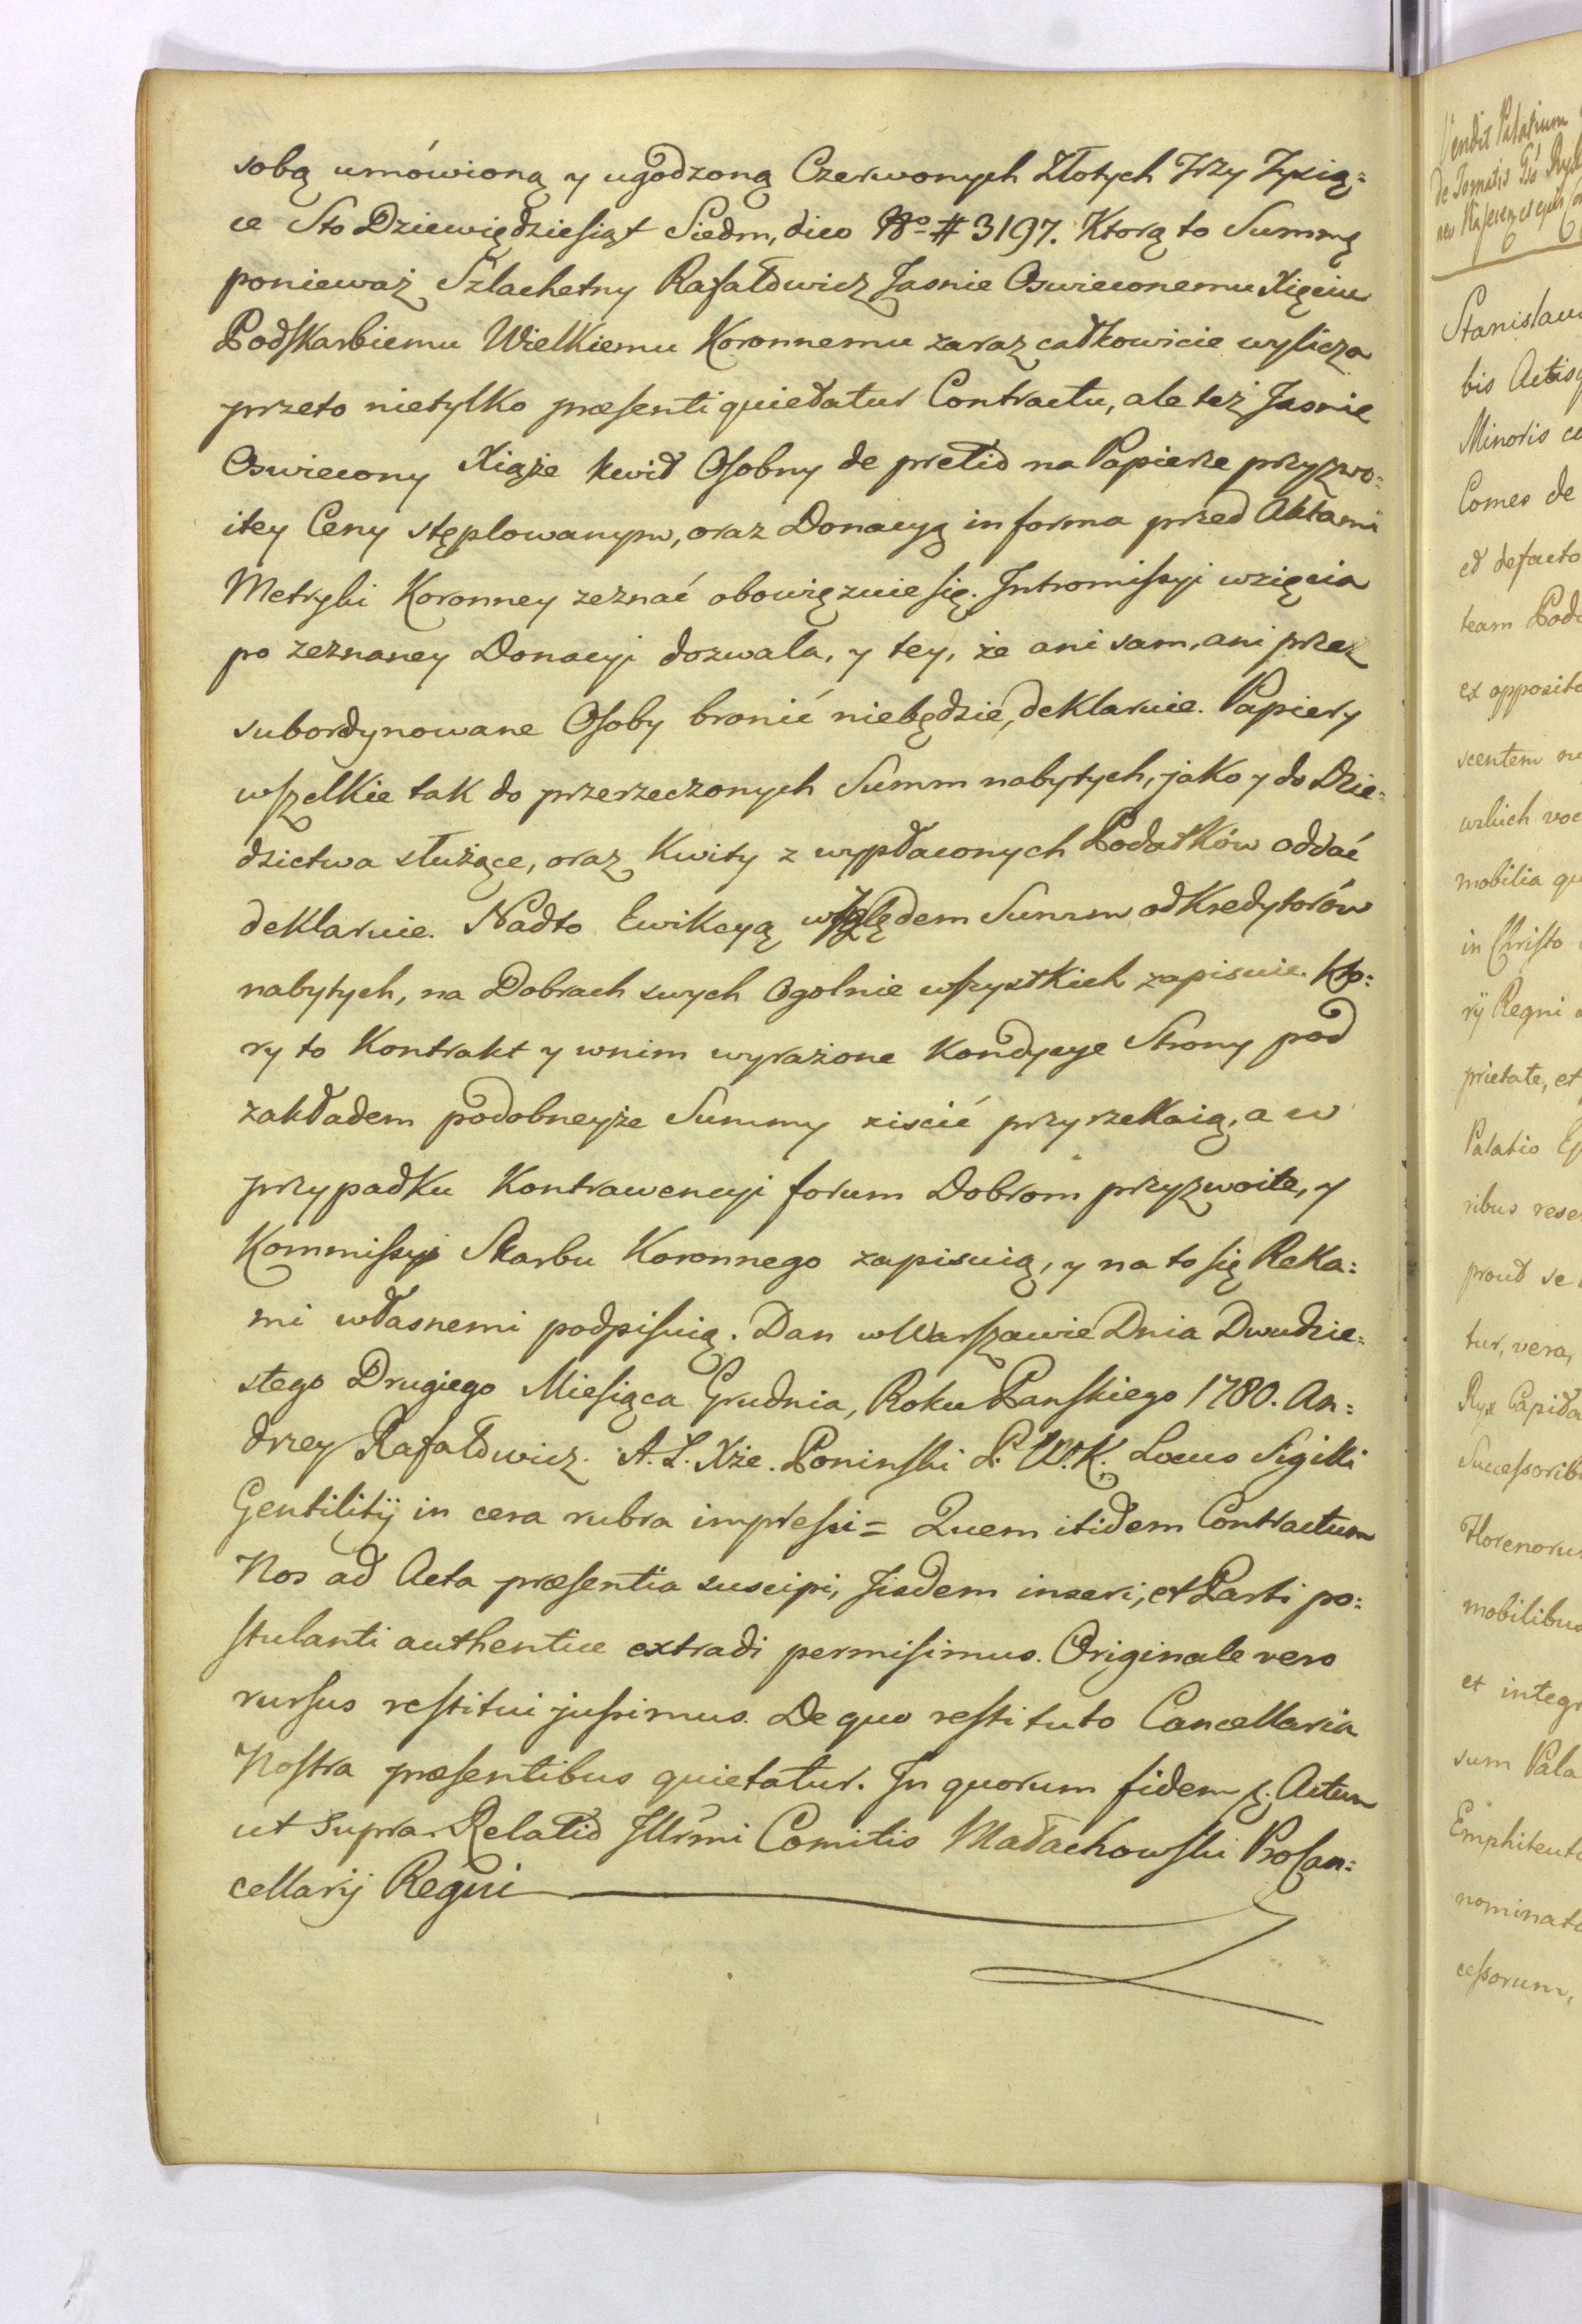 sobą umówioną y ugodzoną Czerwonych Złotych Trzy Tysią:
ce Sto Dziewiędziesiąt Siedm, dico Nro # 3197. Ktorą to Summę
ponieważ Szlachetny Rafałowicz Jasnie Oswieconemu Xięciu
Podskarbiemu Wielkiemu Koronnemu zaraz całkowicie wylicza
przeto nietylko præsenti quietatur Contractu, ale też Jasnie
Oswiecony Xiąże kwit Osobny de pretio na Papierze przyzwo:
itey Ceny stęplowanym, oraz Donacyą in forma przed Aktami
Metryki Koronney zeznać obowięzuie się. Intromissyi wzięcia
po zeznaney Donacyi dozwala, y tey, że ani sam, ani przez
subordynowane Osoby bronić niebędzie, deklaruie. Papiery
wszelkie tak do przerzeczonych Summ nabytych, jako y do Dzie:
dzictwa służące, oraz Kwity z wypłaconych Podatków oddać
deklaruie. Nadto Ewikcyą względem Summ od Kredytorów
nabytych, na Dobrach swych Ogolnie wszystkich zapisuie. Kto:
ry to Kontrakt y wnim wyrażone Kondycye Strony pod
zakładem podobneyże Summy ziscić przyrzekaią, a w
przypadku Kontrawencyi forum Dobrom przyzwoite, y
Kommissyi Skarbu Koronnego zapisuią, y na to się Reka:
mi własnemi podpisuią. Dan w Warszawie Dnia Dwudzie:
stego Drugiego Miesiąca Grudnia, Roku Panskiego 1780. An:
drzey Rafałowicz. A. L. Xże. Poninski P. W. K. Locus Sigilli
Gentilitij in cera rubra impressi = Quem itidem Contractum
Nos ad Acta præsentia suscipi, Jisdem inseri, et Parti po:
stulanti authentice extradi permisimus. Originale vero
rursus restitui jussimus. De quo restituto Cancellaria
Nostra præsentibus quietatur. In quorum fidem p. Actum
ut Supra. Relatio Illrmi Comitis Małachowski ProCan:
cellarij Regni
Vendit Palatium
Stanislau
bis Actisq
Minoris
Comes de
et defacto
team
ex opposito
scentem
mobilia
in Christo
rij Regni
prietate, et
Palatio
ribus
prout se
tur, vera,
Ryx
Successorib
Florenoru
mobilibus
et integr
sum Pala
Emphiteut
nominat
cessorum,